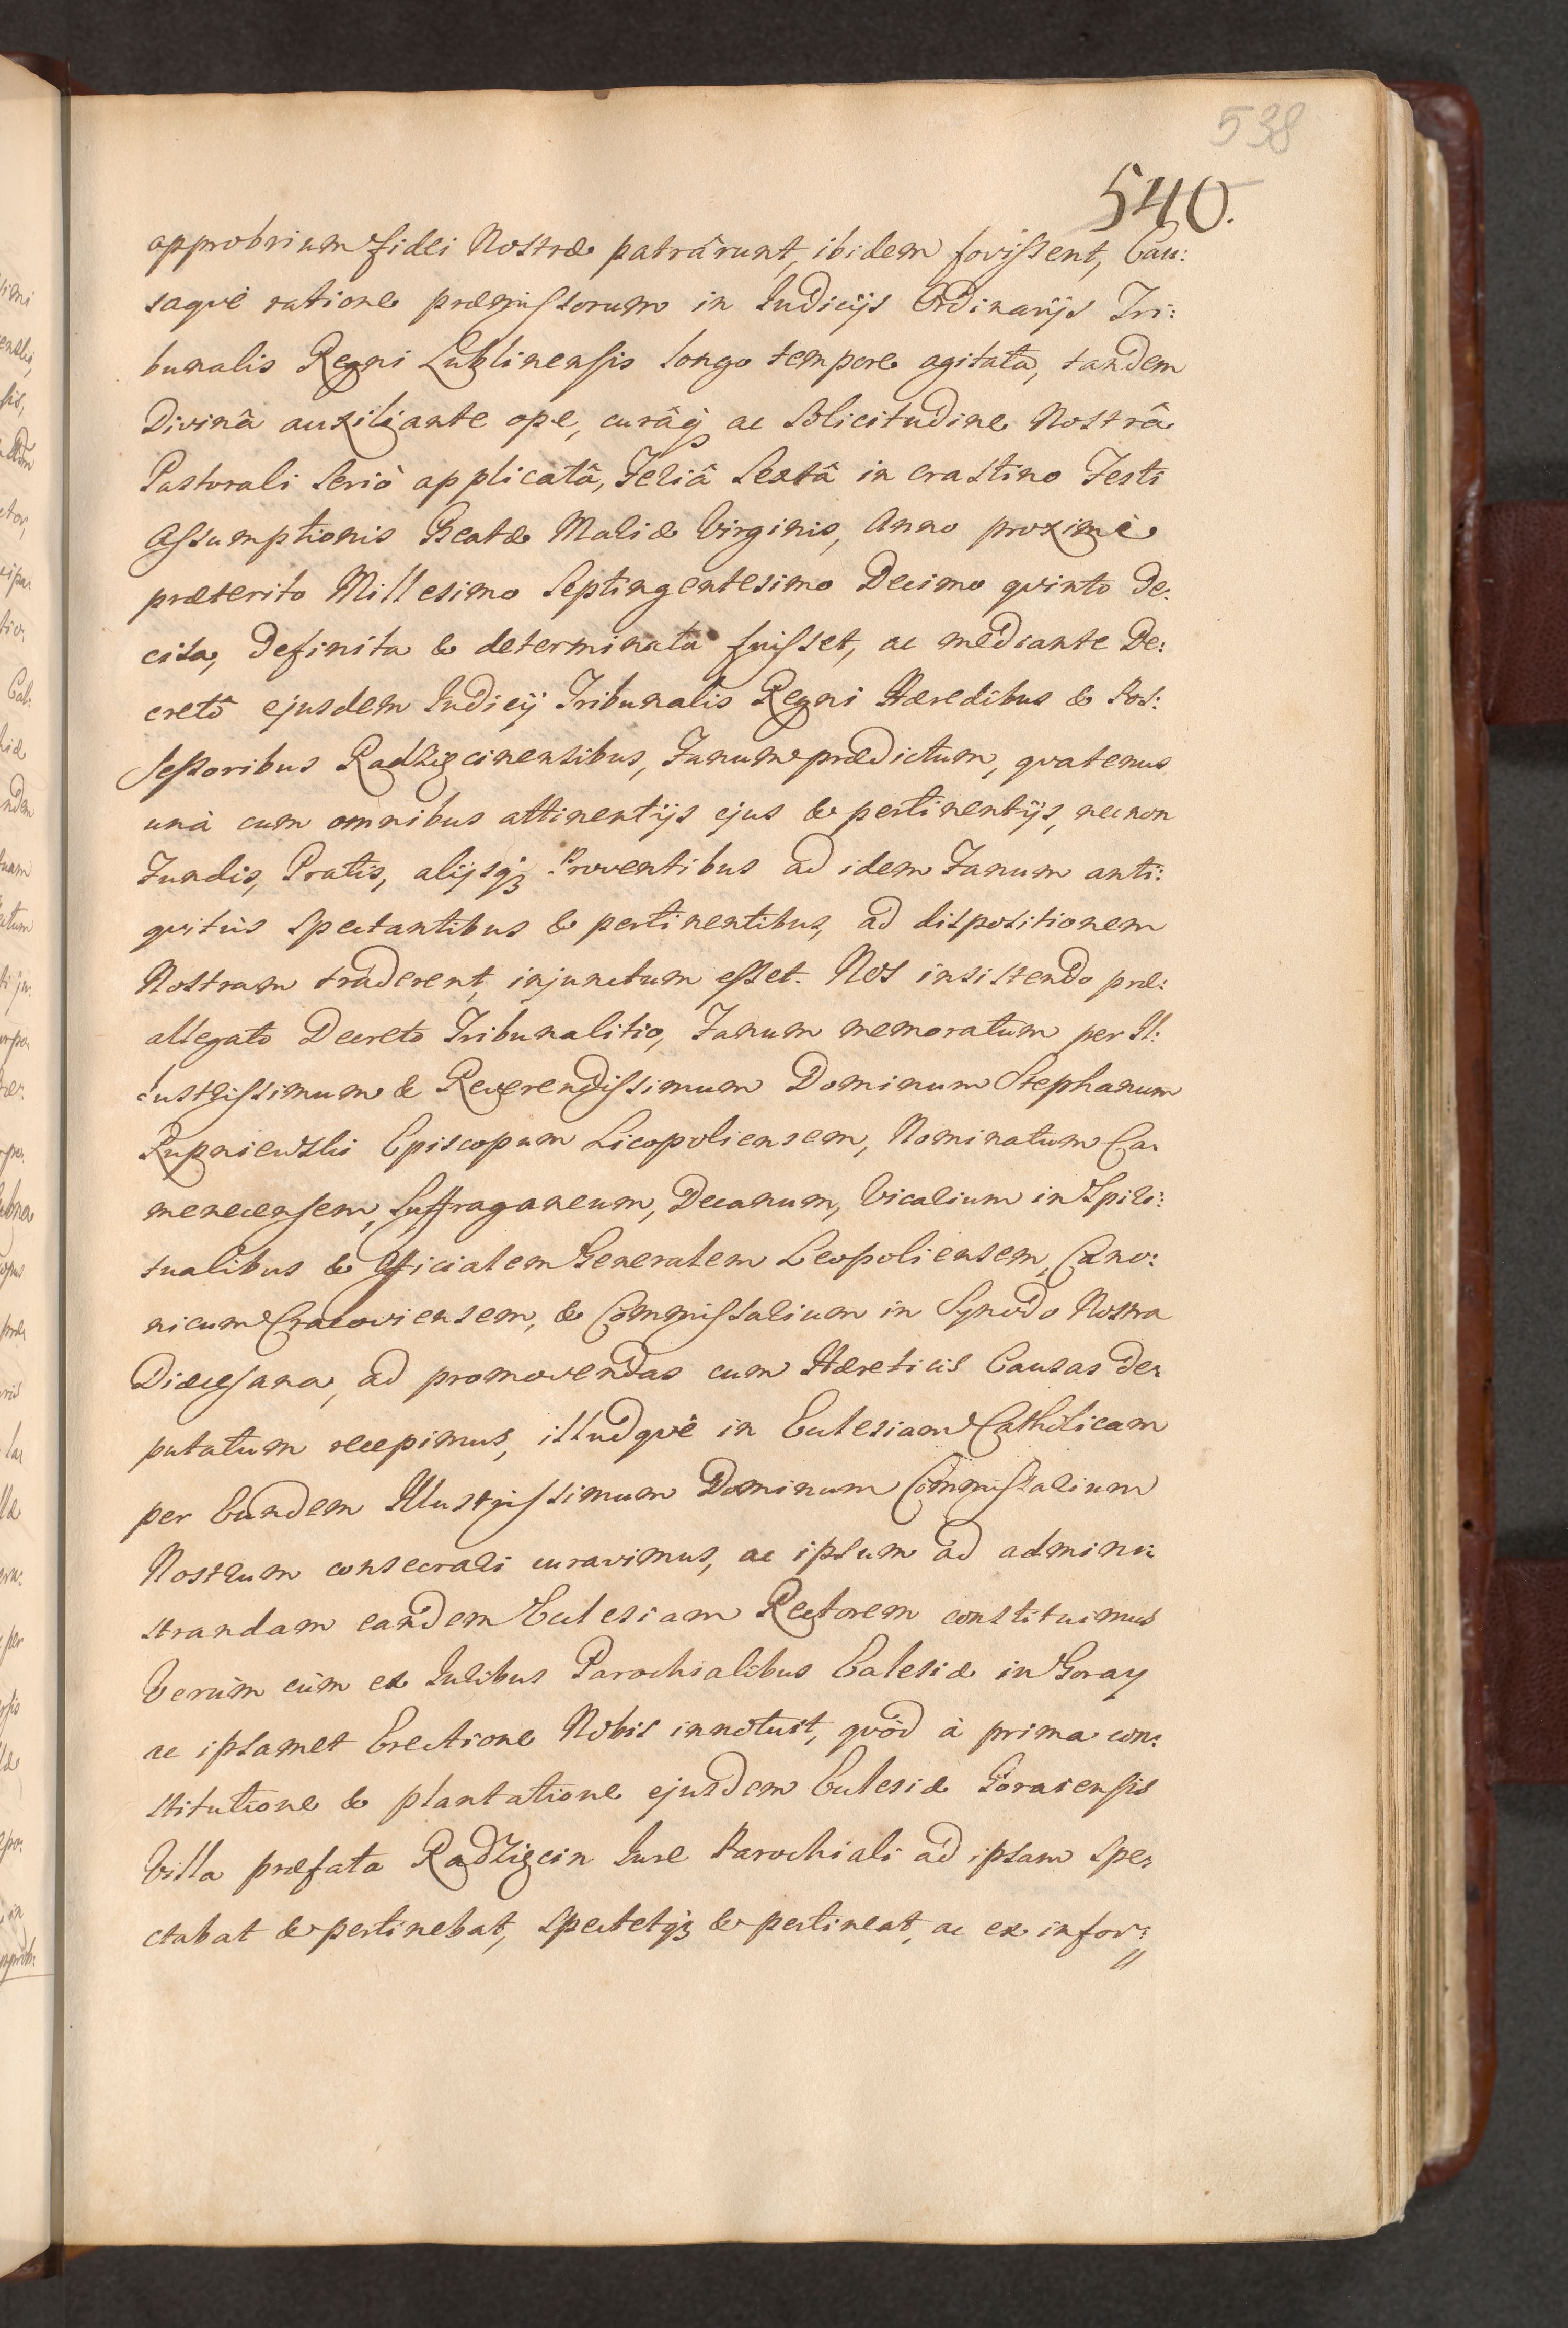 538
540.
opprobrium fidei Nostræ patrârunt, ibidem fovissent, Cau:
saque ratione præmissorum in Iudicijs Ordinarijs Tri:
bunalis Regni Lublinensis longo tempore agitata, tandem
Divinâ auxiliante ope, curâq; ac Solicitudine Nostrâ
Pastorali Seriò applicatâ, Feriâ Sextâ in crastino Festi
Assumptionis Beatæ Mariæ Virginis, Anno proximè
præterito Millesimo Septingentesimo Decimo quinto de:
cisa, definita & determinata fuisset, ac mediante De:
cretô ejusdem Iudicij Tribunalis Regni Hæredibus & Pos:
sessoribus Radzięcinensibus, Fanum prædictum, quatenus
unà cum omnibus attinentijs ejus & pertinentijs, necnon
Fundis, Pratis, alijsq3 Proventibus ad idem Fanum anti:
quitùs spectantibus & pertinentibus, ad dispositionem
Nostram traderent, injunctum esset. Nos insistendo præ:
allegato Decreto Tribunalitio, Fanum memoratum per Il:
lustrissimum & Reverendissimum Dominum Stephanum
Rupniewski Episcopum Licopoliensem, Nominatum Ca:
menecensem, Suffraganeum, Decanum, Vicarium in Spiri:
tualibus & Officialem Generalem Leopoliensem, Cano:
nicum Cracoviensem, & Commissarium in Synodo Nostra
Diæcesana, ad promovendas cum Hæreticis Causas de:
putatum recepimus, illudque in Ecclesiam Catholicam
per Eundem Illustrissimum Dominum Commissarium
Nostrum consecrari curavimus, ac ipsum ad admini:
strandam eandem Ecclesiam Rectorem constituimus
Verùm cùm ex Iuribus Parochialibus Ecclesiæ in Goray
ac ipsamet Erectione Nobis innotuit, quòd à prima con:
stitutione & plantatione ejusdem Ecclesiæ Goraiensis
Villa præfata Radzięcin Iure Parochiali ad ipsam spe:
ctabat & pertinebat, spectetq3 & pertineat, ac ex infor: